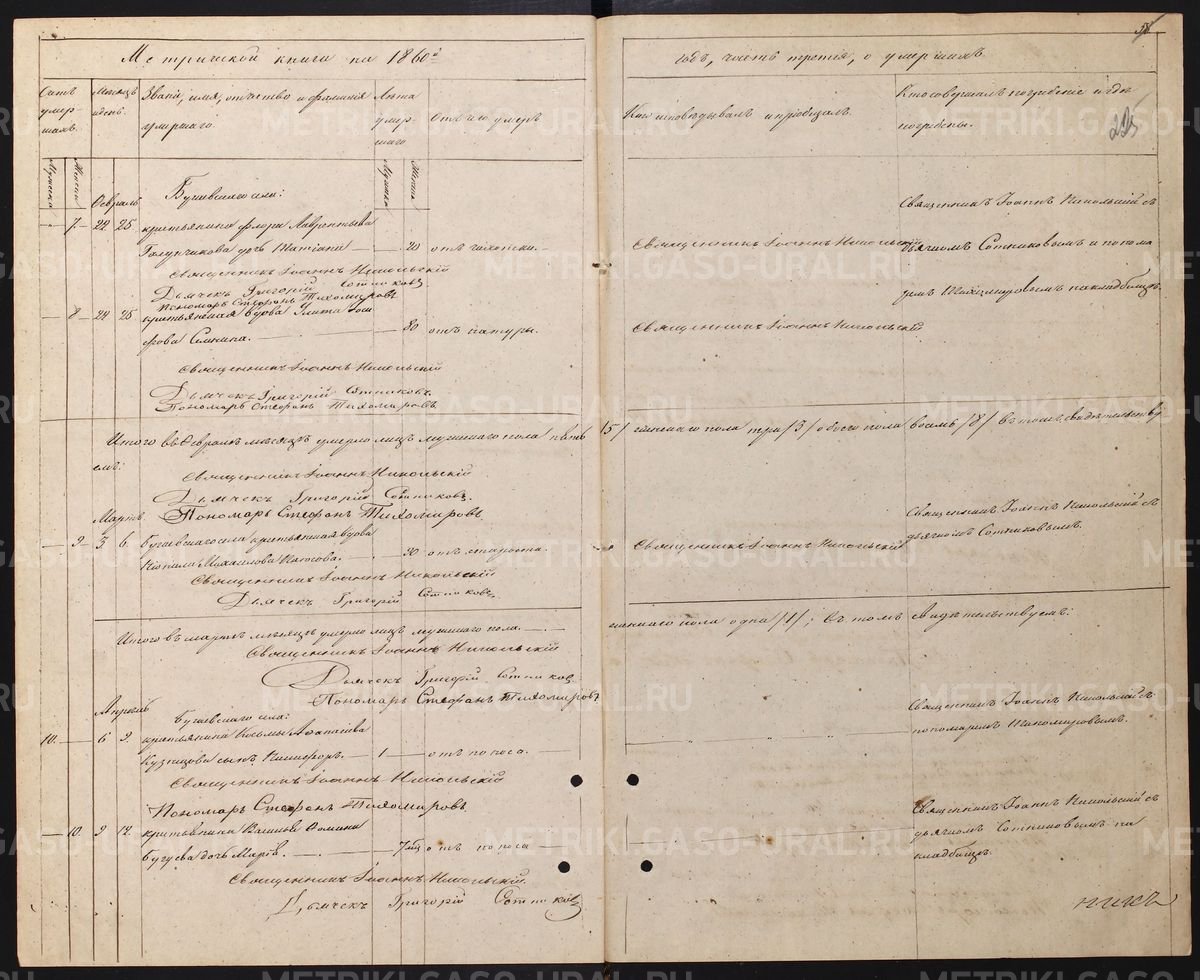 Метрической книги на 1860й
Счетъ умер-шихъ.
Мѣсяцъ и день.
Званіе, имя, отчество и фамилія умершаго.
Лѣта умер-шаго
Отъ чего умеръ
Мужска
Женска
Мужска
Женска
Февраль
села:
— 7 — 22 25 крестьянина Флора Лаврентьева
дочь Татіана — 20 отъ чахотки. —
Священникъ Іоаннъ Никольскій
Дьячекъ Григорій Сотниковъ
Пономарь Стефанъ Тихомировъ
— 8 — 24 25 крестьянская вдова Улита
— 80 отъ натуры.
Священникъ Іоаннъ Никольскій
Дьячекъ Григорій Сотниковъ.
Пономарь Стефанъ Тихомировъ
Итого въ Февралѣ мѣсяцѣ умерло лицъ мужскаго пола пять
Священникъ Іоаннъ Никольскій
Дьячекъ Григорій Сотниковъ.
Мартъ Пономарь Стефанъ Тихомировъ
— 9 — 3 6. села крестьянская вдова
Михайлова — 90 отъ старости.
Священникъ Іоаннъ Никольскій
Дьячекъ Григорій Сотниковъ
Итого въ мартѣ мѣсяцѣ умерло лицъ мужскаго пола — —
Священникъ Іоаннъ Никольскій
Дьячекъ Григорій Сотниковъ
Пономарь Стефанъ Тихомировъ
Апрѣль
села:
10. — 6 9. крестьянина Козьмы
Кузнецова сынъ Никифоръ. — 1 — отъ поноса. —
Священникъ Іоаннъ Никольскій
Пономарь Стефанъ Тихомировъ
— 10. 9 12. крестьянина
дочь Марія. — — 7 отъ поноса
Священникъ Іоаннъ Никольскій.
Дьячекъ Григорій Сотниковъ
годъ, часть третія, о умершихъ
Кто исповѣдывалъ и пріобщалъ.
Кто совершалъ погребеніе и гдѣ погребены.
Священникъ Іоаннъ Никольскій съ
Священникъ Іоаннъ Никольскій
дьячкомъ Сотниковымъ и понома
ремъ Тихомировымъ на кладбищѣ.
Священникъ Іоаннъ Никольскій
/5/ женскаго пола три /3/ обоего пола восемь /8/ въ томъ свидѣтельству
Священникъ Іоаннъ Никольскій съ
дьячкомъ Сотниковымъ.
Священникъ Іоаннъ Никольскій
женскаго пола одна /1/; въ томъ свидѣтельствуемъ:
Священникъ Іоаннъ Никольскій съ
пономаремъ Тихомировымъ.
Священникъ Іоаннъ Никольскій съ
дьячкомъ Сотниковымъ на
кладбищѣ.
METRIKI.GASO-URAL.RU